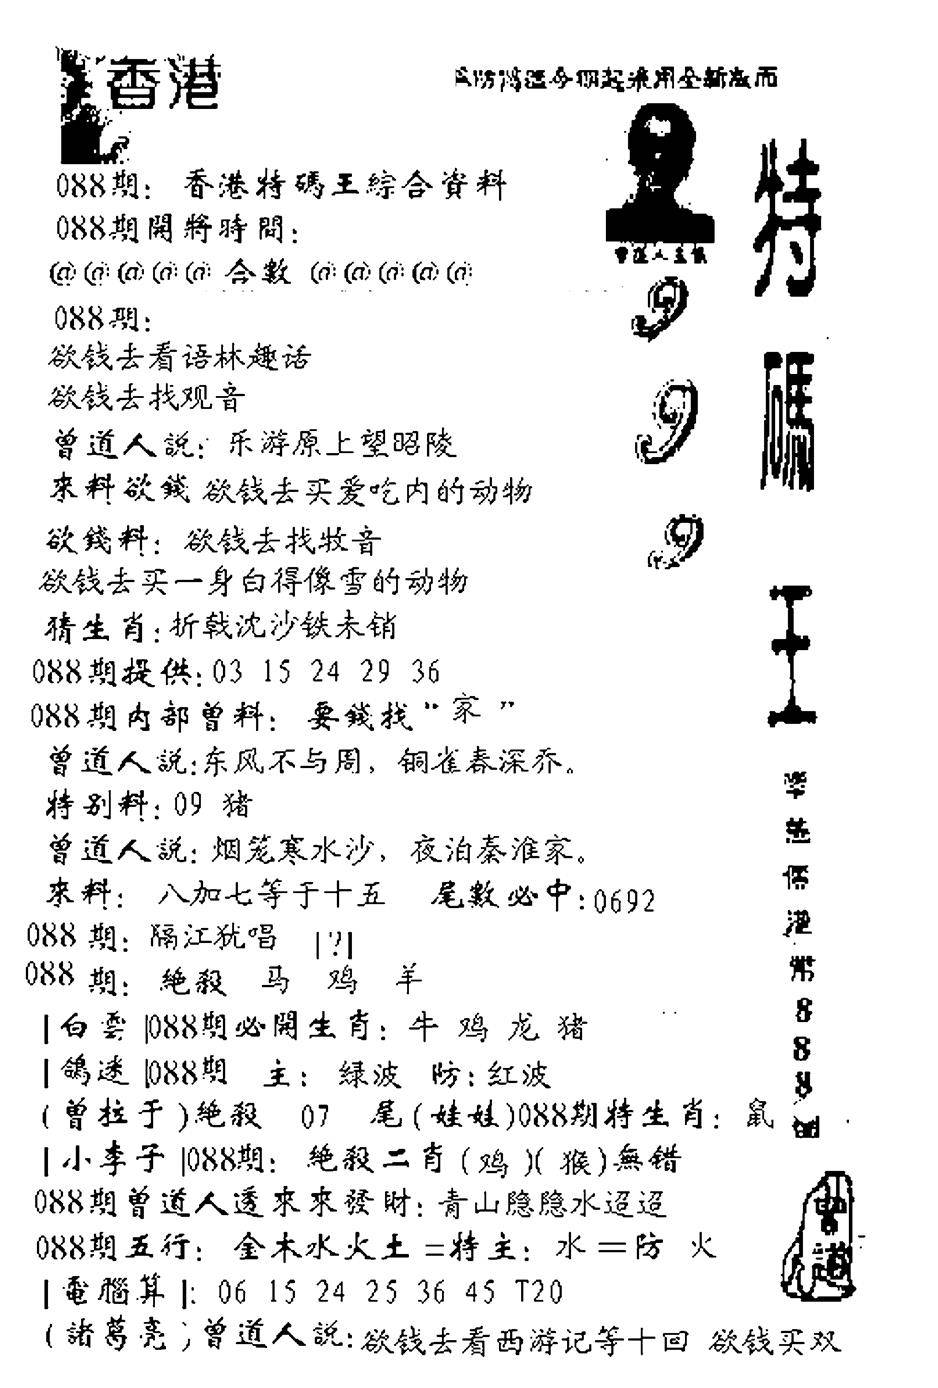 香港
特碼王
088期：香港特碼王綜合資料
088期開將時間：
@@@@@ 合數 @@@@@
999
088期：
欲钱去看语林趣话
欲钱去找观音
曾道人説：乐游原上望昭陵
來料欲錢 欲钱去买爱吃内的动物
欲錢料：欲钱去找牧音
欲钱去买一身白得像雪的动物
猜生肖：折戟沈沙铁未销
088期提供：03 15 24 29 36
088期内部曾料：要錢找“家”
曾道人説：东风不与周，铜雀春深乔。
特别料：09 猪
曾道人説：烟笼寒水沙，夜泊秦淮家。
來料：八加七等于十五 尾數必中：0692
088期：隔江犹唱 |?|
088期：絶殺 马 鸡 羊
|白雲|088期必開生肖：牛 鸡 龙 猪
|鴿迷|088期 主：緑波 防：红波
(曾拉于)絶殺 07 尾(娃娃)088期特生肖：鼠
|小李子|088期：絶殺二肖(鸡)(猴)無错
088期曾道人透來來發財：青山隐隐水迢迢
088期五行：金木水火土=特主：水=防 火
|電腦算|：06 15 24 25 36 45 T20
(諸葛亮)曾道人説：欲钱去看西游记等十回 欲钱买双
港幣888